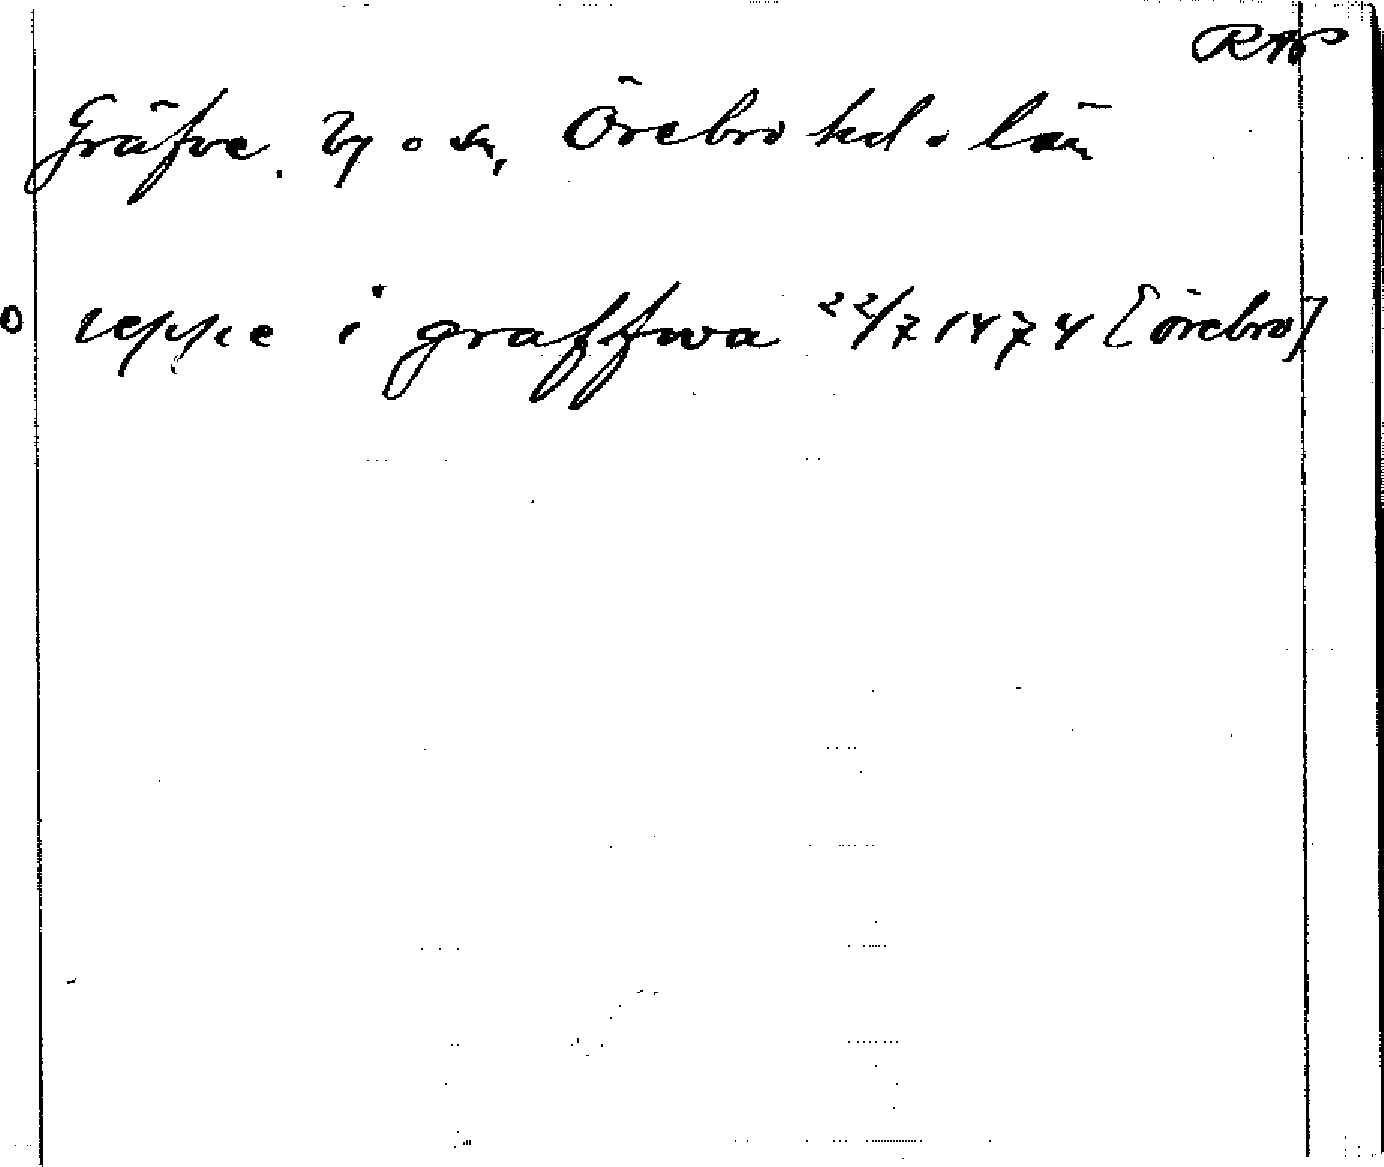 RAP
Gräfve. by o. sn, Örebro hd o. län
O reppe i graffwa 22/7 1474 [örebro]